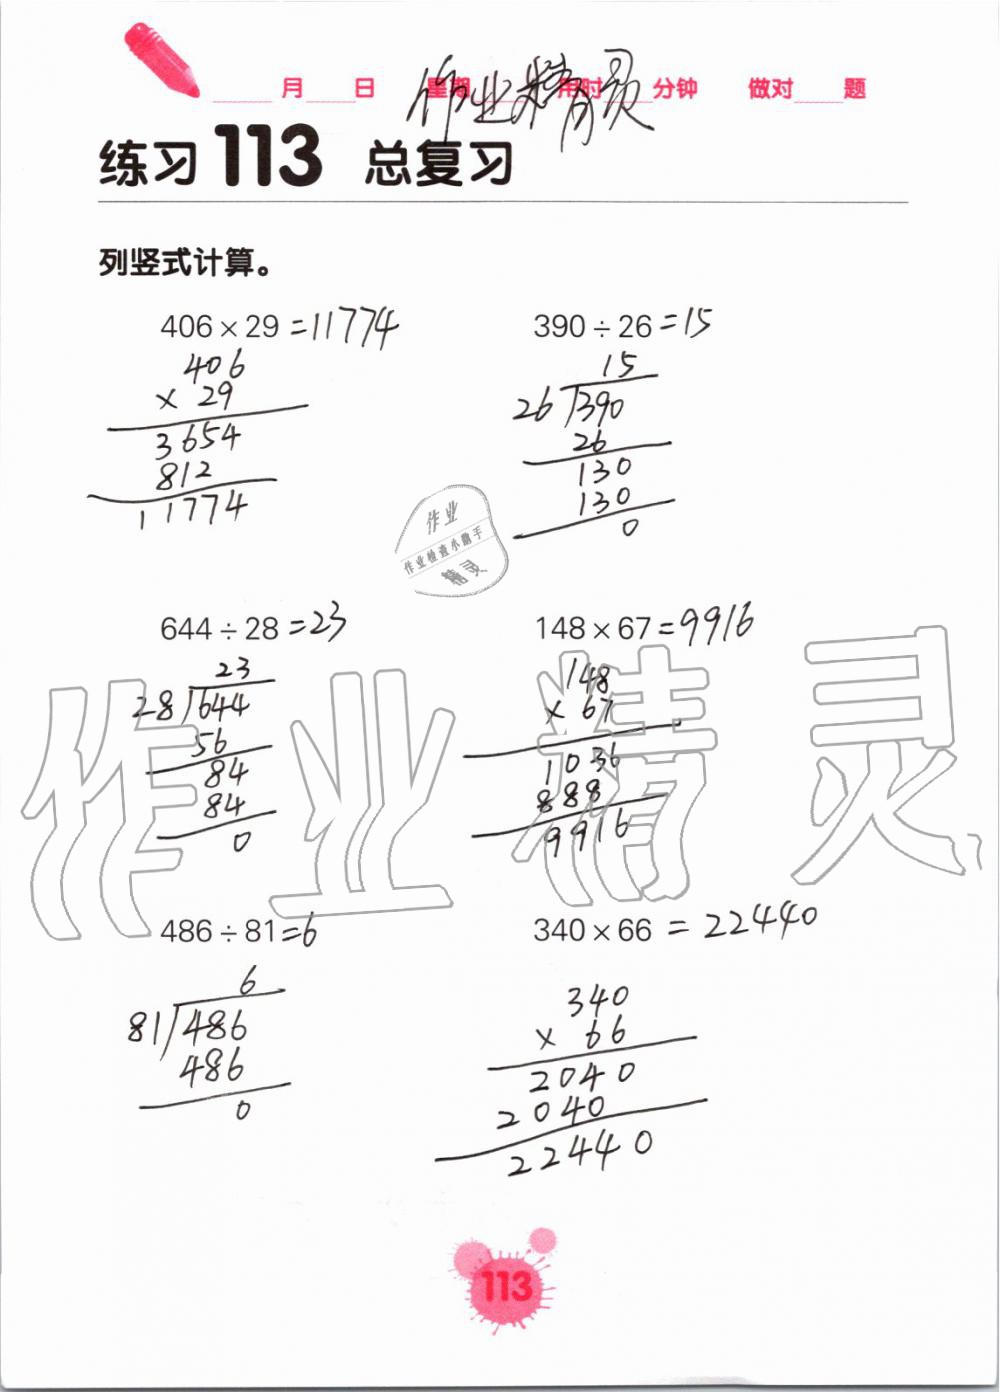 ____月____日 星期____ 用时____分钟 做对____题
作业精灵
练习113 总复习
列竖式计算。
406×29=11774 390÷26=15
406
× 29
3654
812
11774
15
26 390
26
130
130
0
作业
作业检查小助手
精灵
644÷28=23 148×67=9916
23
28 644
56
84
84
0
148
× 67
1036
888
9916
作业精灵
486÷81=6 340×66=22440
6
81 486
486
0
340
× 66
2040
2040
22440
113